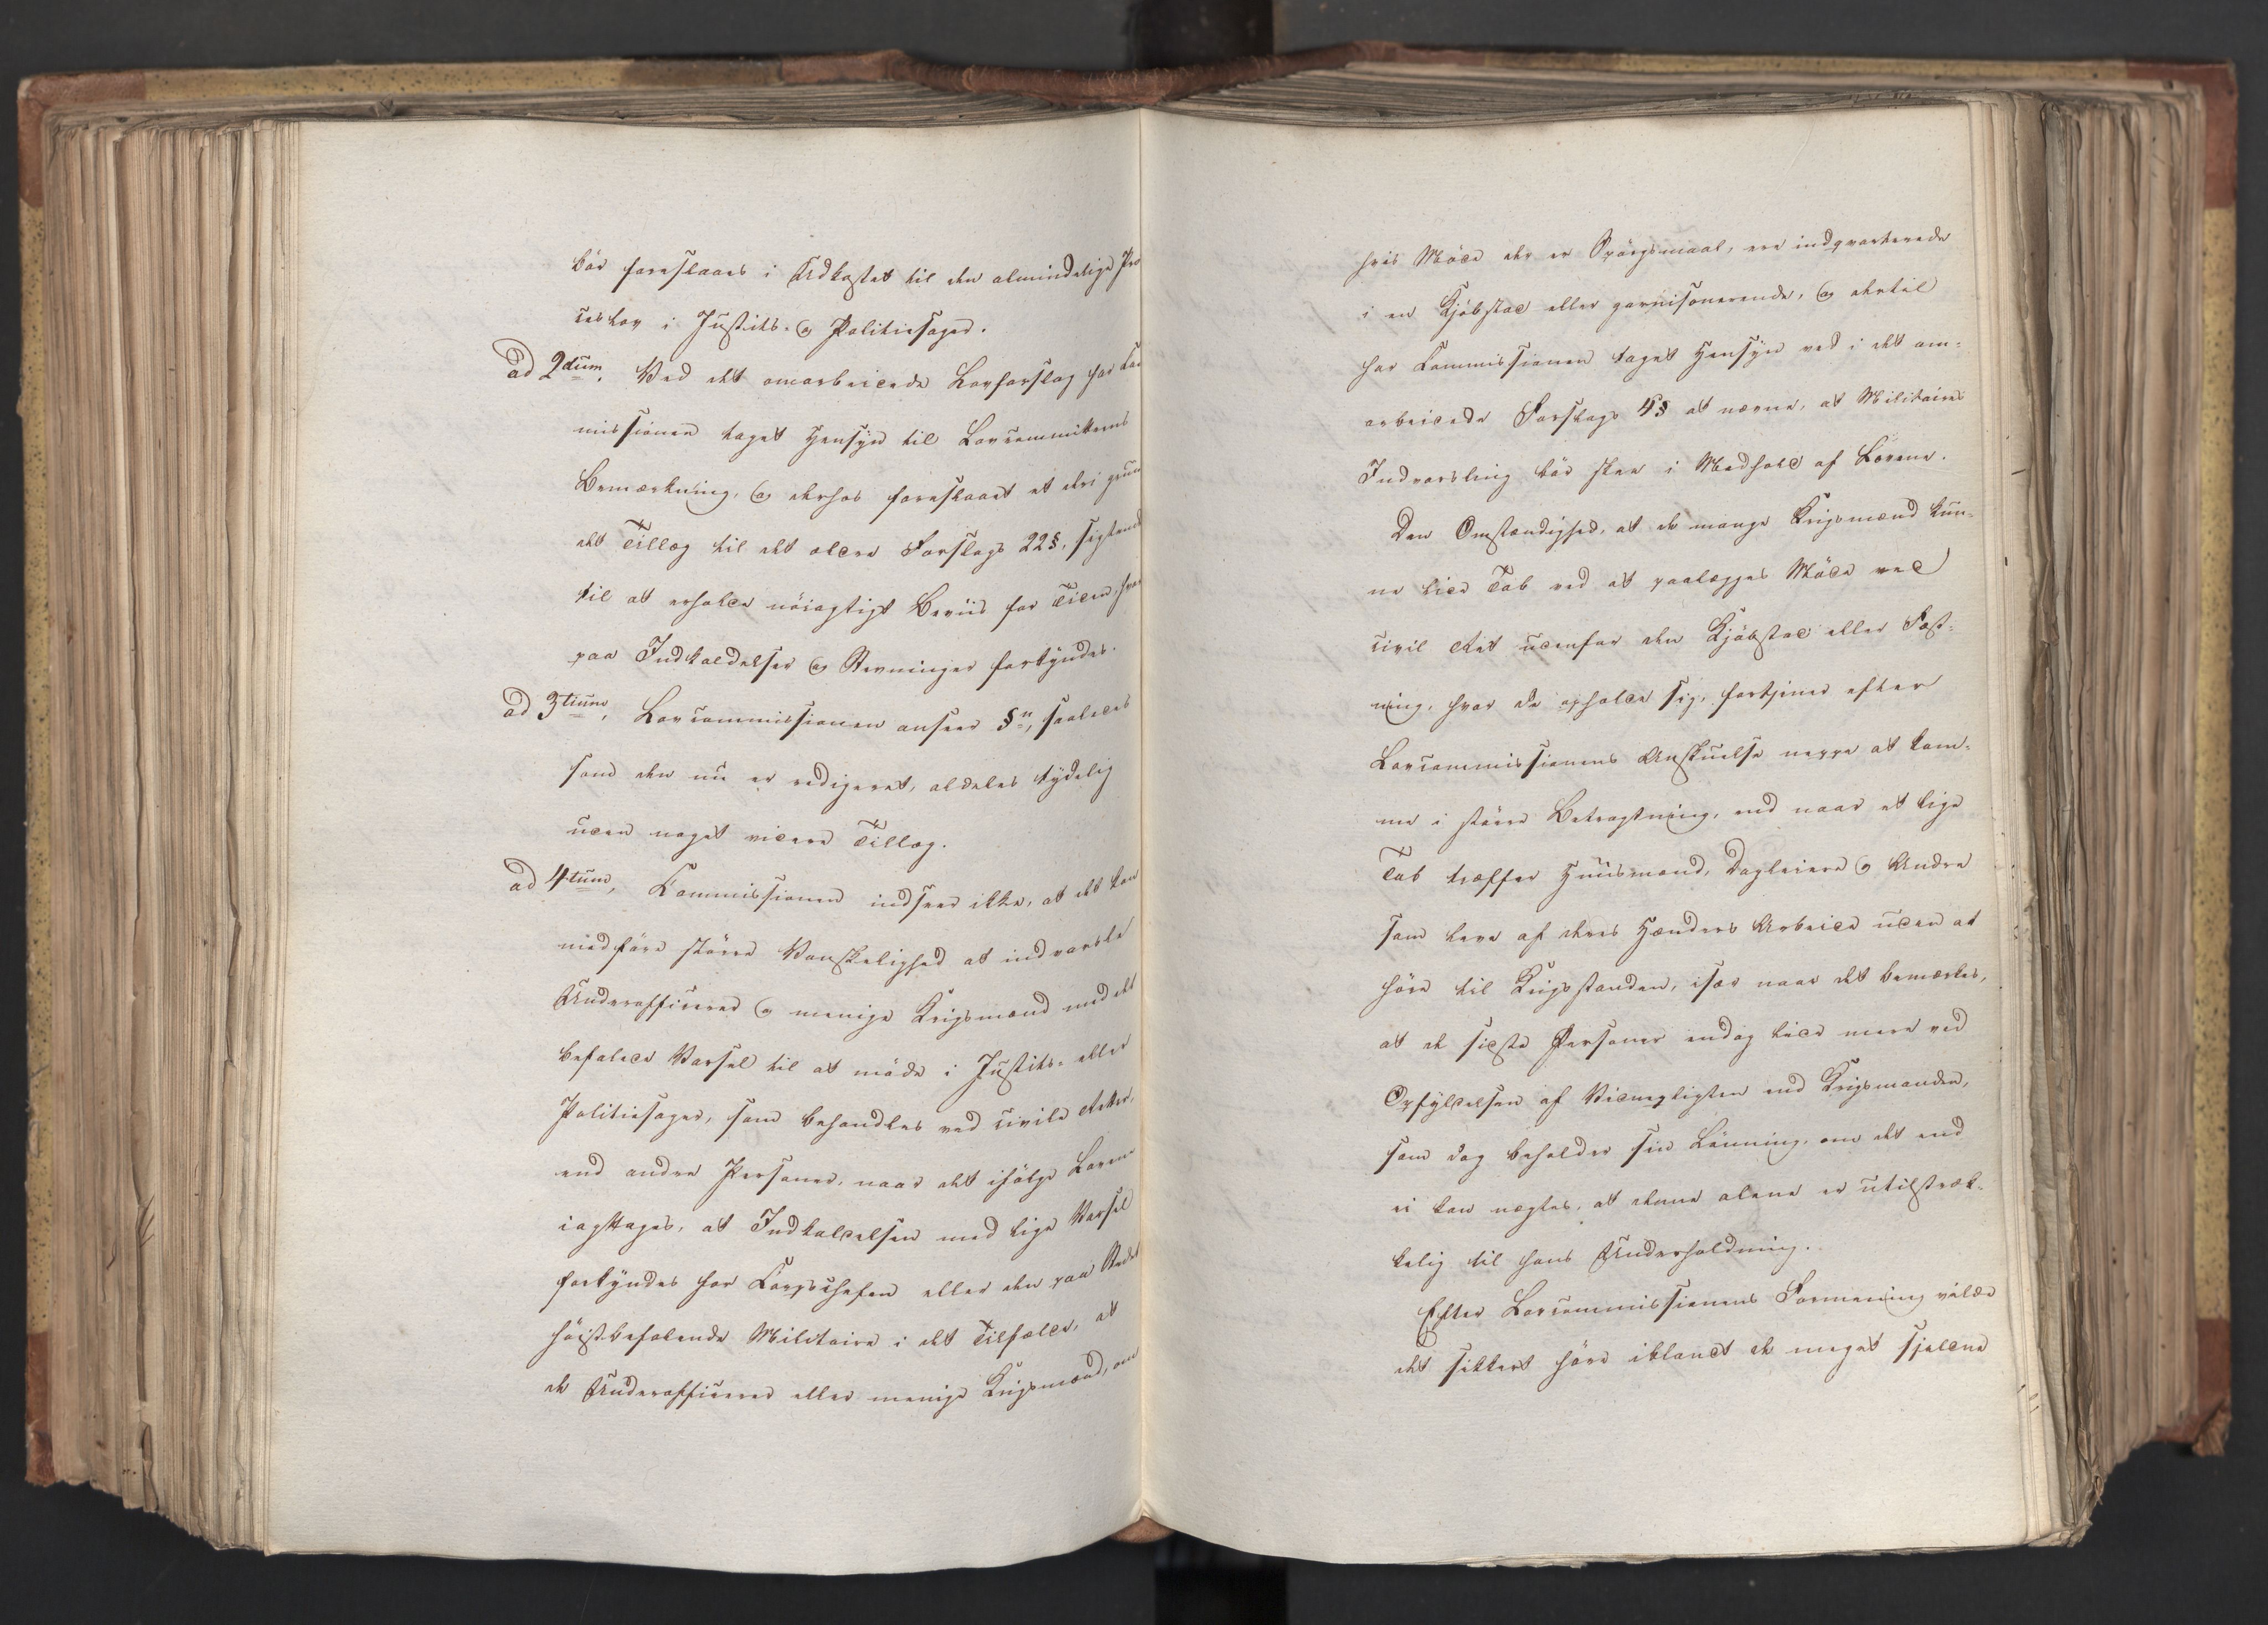 bör foreslaaes i Udkastet til den almindelige Pro
ceslov i Justits- og Politiesager.
ad 2dum, Ved det omarbeidede Lovforslag har Com
missionen taget Hensyn til Lovcommitteens
Bemærkning, og derhos foreslaaet et deri grun
det Tillæg til det ældre Forslags 22§, sigtende
til at erholde nöiagtigt Beviis for Tiden, hvor
paa Indkaldelser og Stevninger forkyndes.
ad 3tium, Lovcommissionen anseer §n, saaledes
som den nu er redigeret, aldeles tydelig
uden noget videre Tillæg.
ad 4tum, Commissionen indseer ikke, at det kan
medföre större Vanskelighed at indvarsle
Underofficerer og menige Krigsmænd med det
befalede Varsel til at möde i Justits- eller
Politiesager, som behandles ved civile Retter,
end andre Personer, naar det ifölge Loven
iagttages, at Indkaldelsen med lige Varsel
forkyndes for Corpschefen eller den paa Stedet
höistbefalende Militaire i det Tilfælde, at
de Underofficerer eller menige Krigsmænd, om
hvis Möde der er Spörgsmaal, ere indqvarterede
i en Kjöbstad eller garnisonerende, og dertil
har Commissionen taget Hensyn ved i det om-
arbeidede Forslags 4§ at nævne, at Militaires
Indvarsling bör skee i Medhold af Lovene.
Den Omstændighed, at de mange Krigsmænd kun-
ne lide Tab ved at paalægges Möde ved
civil Ret udenfor den Kjöbstad eller Fæst-
ning, hvor de opholde sig, fortjener efter
Lovcommissionens Anskuelse neppe at kom-
me i större Betragtning, end naar et lige
Tab træffer Huusmænd, Dagleiere og Andre
som leve af deres Hænders Arbeide uden at
höre til Krigsstanden, især naar det bemærkes,
at de sidste Personer endog lide mere ved
Opfyldelsen af Vidnepligten end Krigsmanden,
som dog beholder sin Lönning, om det end
ei kan nægtes, at denne alene er utilstræk-
kelig til hans Underholdning.
Efter Lovcommissionens Formening vilde
det sikkert höre iblandt de meget sjeldne